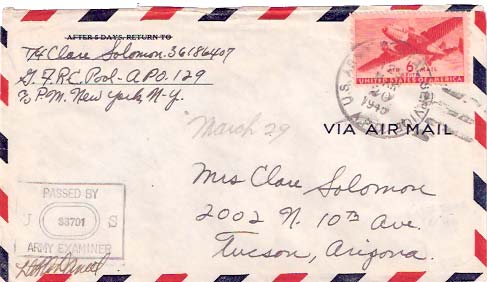 AFTER 5 DAYS, RETURN TO
T/4 Clare Solomon. 36186407
G.F.R.C. Pool - A.P.O. 129
℅ P.M. New York, N.Y.
6¢
AIR MAIL
UNITED STATES OF AMERICA
U.S. ARMY
SERVICE
A.P.O.
MAR
March 29
VIA AIR MAIL
Mrs Clare Solomon
2002 N. 10th Ave.
Tucson, Arizona.
PASSED BY
U S
ARMY EXAMINER